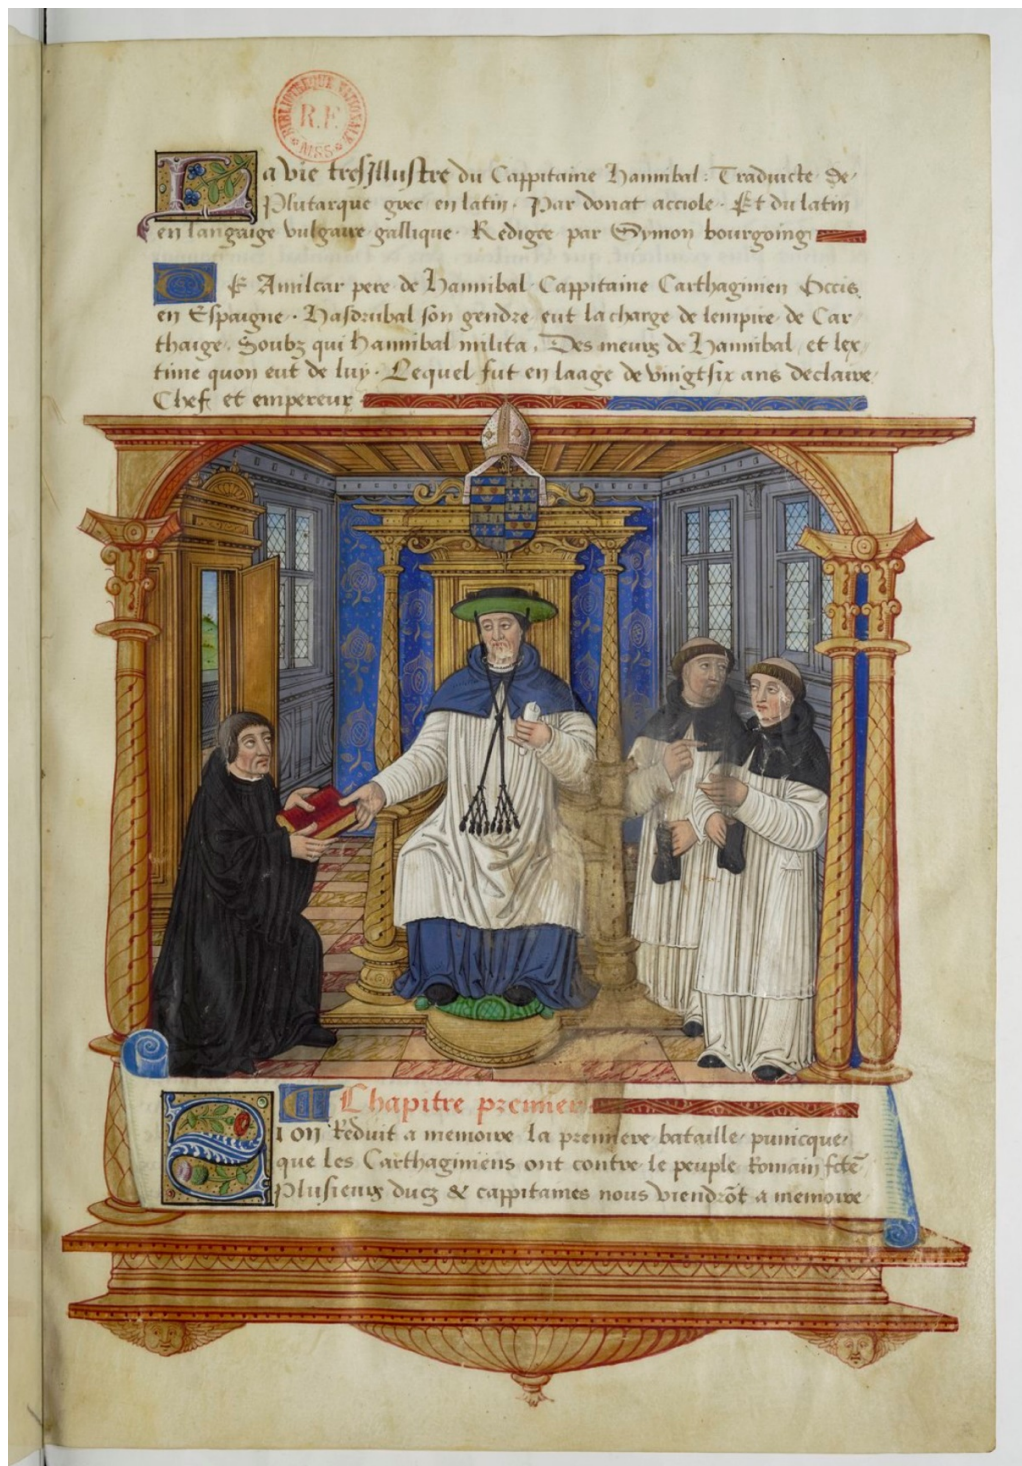 BIBLIOTHEQUE NATIONALE
R.F.
MSS
La vie tresillustre du Cappitaine Hannibal: Traduicte de
Plutarque grec en latin. Par donat acciole. Et du latin
en langaige vulgaire gallique. Redigee par Symon bourgoing
DE Amilcar pere de Hannibal Cappitaine Carthaginien Occis
en Espaigne. Hasdrubal son gendre eut la charge de lempire de Car
thaige. Soubz qui Hannibal milita. Des meurs de Hannibal et lex
time quon eut de luy. Lequel fut en laage de vingtsix ans declaire
Chef et empereur
Chapitre premier
SI on Reduit a memoire la premiere bataille punicque
que les Carthaginiens ont contre le peuple Romain fcte
Plusieurs ducz & cappitaines nous viendrõt a memoire